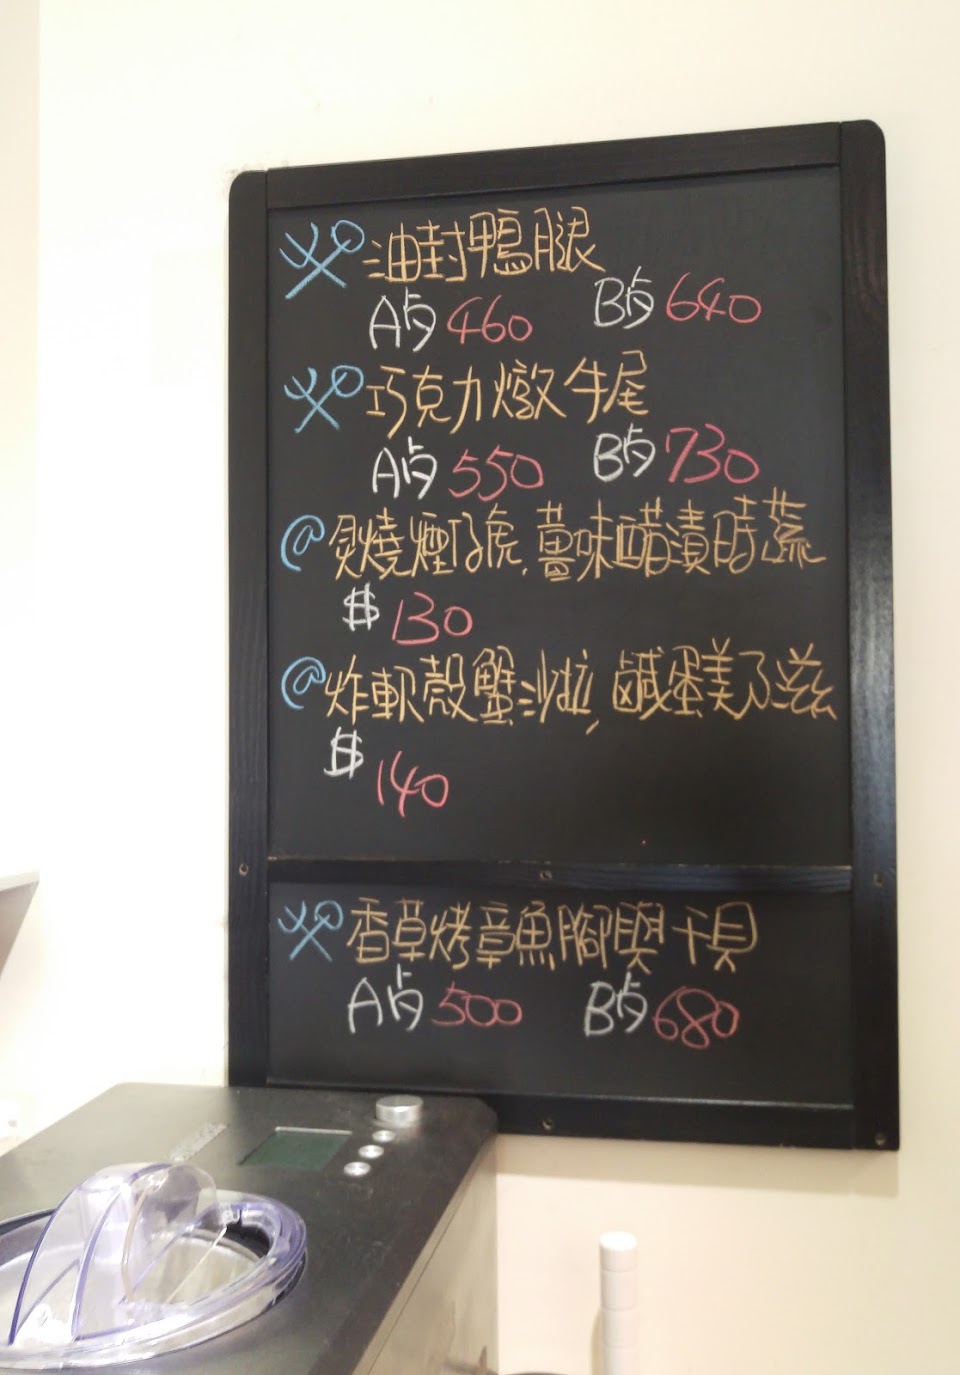 油封鴨腿
A卢460 B卢640
巧克力燉牛尾
A卢550 B卢730
@炙燒煙巧虎,薯味醋漬時蔬
$130
@炸軟殼蟹沙拉,鹹蛋美乃滋
$140
香草烤章魚腳與干貝
A卢500 B卢680